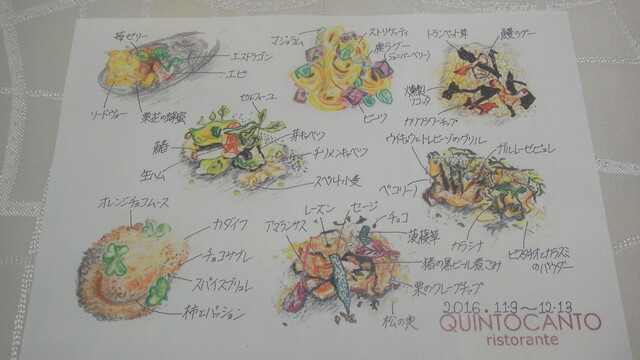 柿ゼリー
エストラゴン
エビ
リードヴォー
栗花の蜂蜜
マジョラム
ストリゲッティ
鹿ラグー
(ジュニパーベリー)
ビーツ
トランペット茸
鰻ラグー
燻製
リコッタ
カリフラワーチップ
セルフィーユ
芽キャベツ
チリメンキャベツ
スペルト小麦
生ハム
ウイキョウとトレビーゾのグリル
ガルムーゼピュレ
ペコリーノ
カラシナ
ピスタチオとカラスミ
のパウダー
オレンジチョコムース
カダイフ
チョコサブレ
スパイスブリュレ
柿とパッション
アマランサス
レーズン
セージ
チョコ
菠薐草
猪の黒ビール煮こみ
栗のクレープチップ
松の実
2016.11.9～12.13
QUINTOCANTO
ristorante